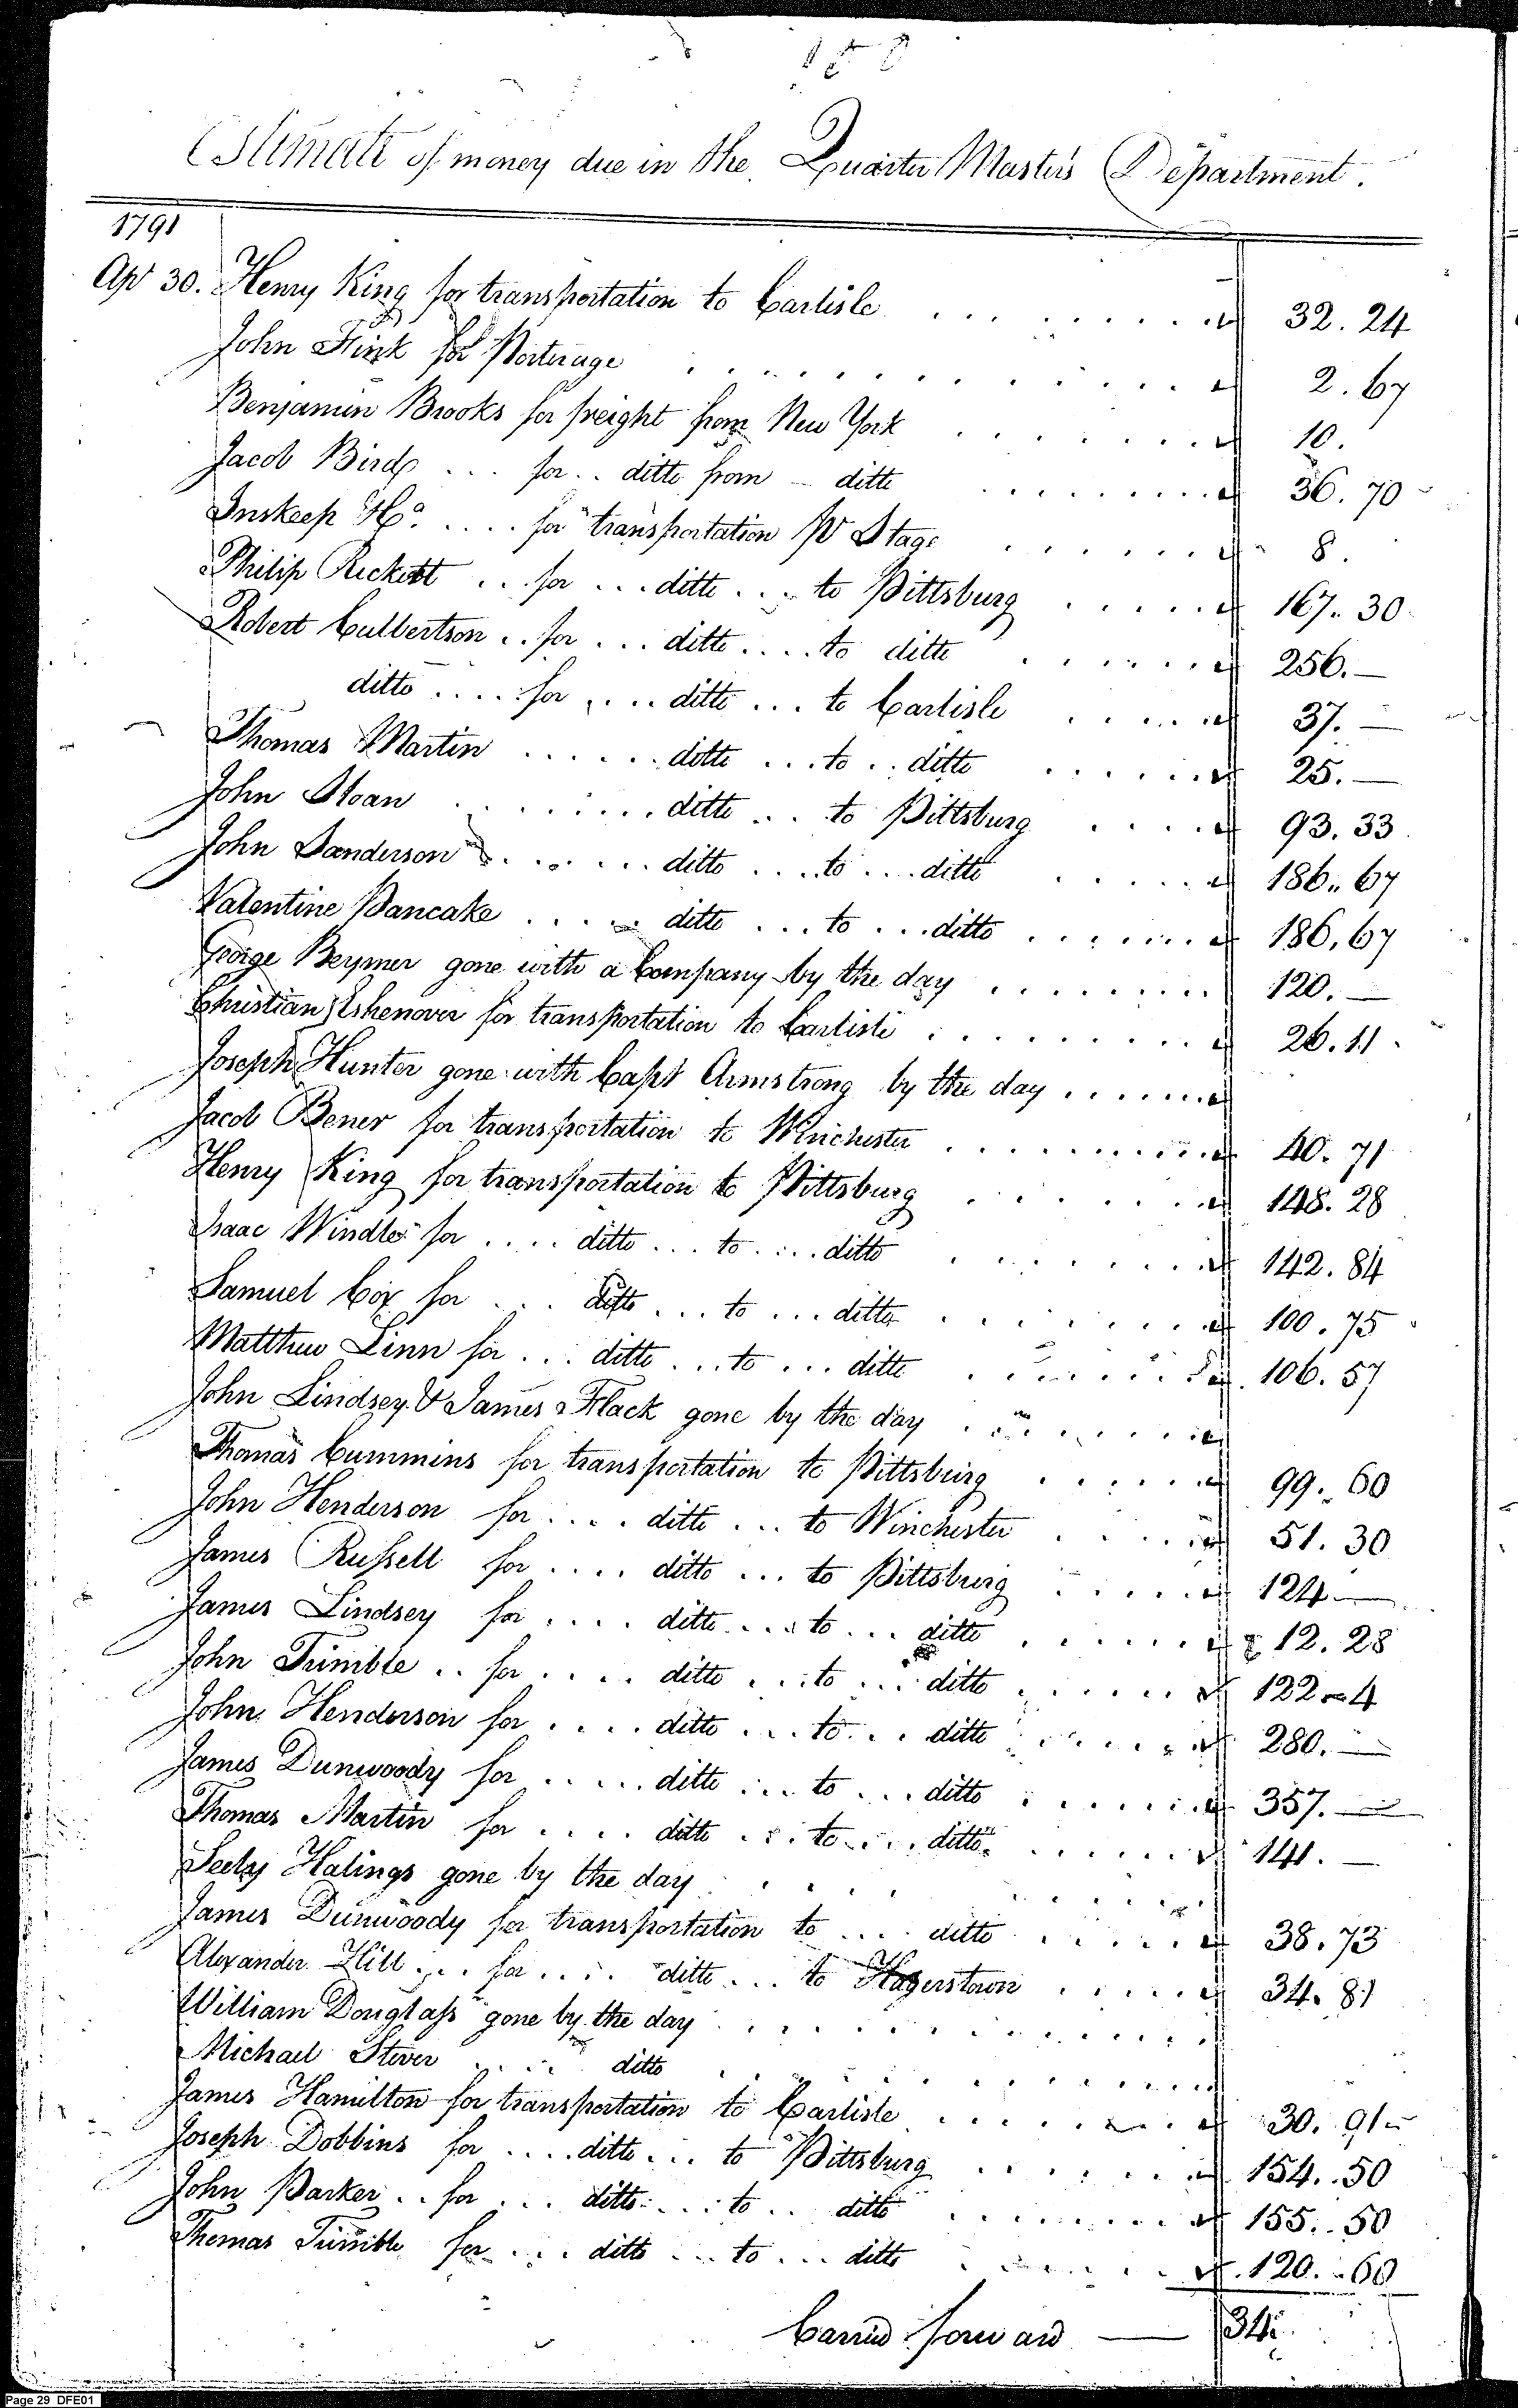 150
Estimate of money due in the Quarter Master's Department.
1791
Apl 30. Henry King for transportation to Carlisle . . . . . . . . 32.24
John Fink for Porterage . . . . . . . . 2.67
Benjamin Brooks for freight from New York . . . . . . . . 10.
Jacob Bird . . . for . . ditto from - ditto . . . . . . . . 36.70
Inskeep & Co. . . . . for transportation pr Stage . . . . . . 8.
Philip Rickett . . for . . . ditto . . . to Pittsburg . . . . . 167.30
Robert Culbertson . . for . . . ditto . . . . to ditto . . . . . . 256.—
ditto . . . . for . . . . ditto . . . to Carlisle . . . . . 37.—
Thomas Martin . . . . . . ditto . . . to . . ditto . . . . . . 25.—
John Sloan . . . . . . . ditto . . . to Pittsburg . . . . 93.33
John Sanderson . . . . . . ditto . . . . to . . . . ditto . . . . . 186.67
Valentine Pancake . . . . . ditto . . . to . . . ditto . . . . . . . 186.67
George Beymer gone with a Company by the day . . . . . . . . 120.—
Christian Eshenover for transportation to Carlisle . . . . . . . . . 26.11
Joseph Hunter gone with Capt Armstrong by the day . . . . . .
Jacob Bener for transportation to Winchester . . . . . . . . . . 40.71
Henry King for transportation to Pittsburg . . . . . . . 148.28
Isaac Windle for . . . . ditto . . . to . . . . ditto . . . . . . . 142.84
Samuel Cox for . . . ditto . . . to . . . ditto . . . . . . . . 100.75
Matthew Linn for . . . ditto . . . to . . . ditto . . . . . . . 106.57
John Lindsey & James Flack gone by the day . . . . . . . .
Thomas Cummins for transportation to Pittsburg . . . . . . 99.60
John Henderson for . . . . ditto . . . to Winchester . . . . . 51.30
James Russell for . . . . ditto . . . to Pittsburg . . . . . 124—
James Lindsey for . . . . ditto . . . . to . . . ditto . . . . . . 12.28
John Trimble . . for . . . . ditto . . . to . . . ditto . . . . . . 122-4
John Henderson for . . . . ditto . . . to . . . ditto . . . . . . 280.—
James Dunwoody for . . . . . ditto . . . to . . . ditto . . . . . . 357.—
Thomas Martin for . . . . ditto . . . to . . . ditto . . . . . . 141.—
Seely Halings gone by the day . . . . . . . .
James Dunwoody for transportation to . . . . ditto . . . . . . 38.73
Alexander Hill . . . for . . . . ditto . . . to Hagerstown . . . . . 34.81
William Douglass gone by the day . . . . . . . . . . .
Michael Stever . . . . . ditto . . . . . . . . . .
James Hamilton for transportation to Carlisle . . . . . . . . 30.91
Joseph Dobbins for . . . . ditto . . . to Pittsburg . . . . . . . 154.50
John Parker . . for . . . ditto . . . . to . . ditto . . . . . . . . 155.50
Thomas Trimble for . . . ditto . . . to . . . ditto . . . . . . 120.60
Carried forward — 34
Page 29 DFE01